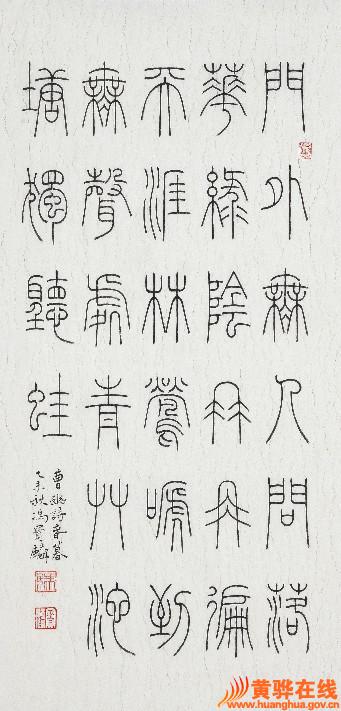 門外無人問落
華綠陰冉冉徧
天涯林鶯嗁到
無聲處青艸池
塘獨聽蛙
曹豳詩春暮
乙未秋馮寶麟
黄骅在线
www.huanghua.gov.cn